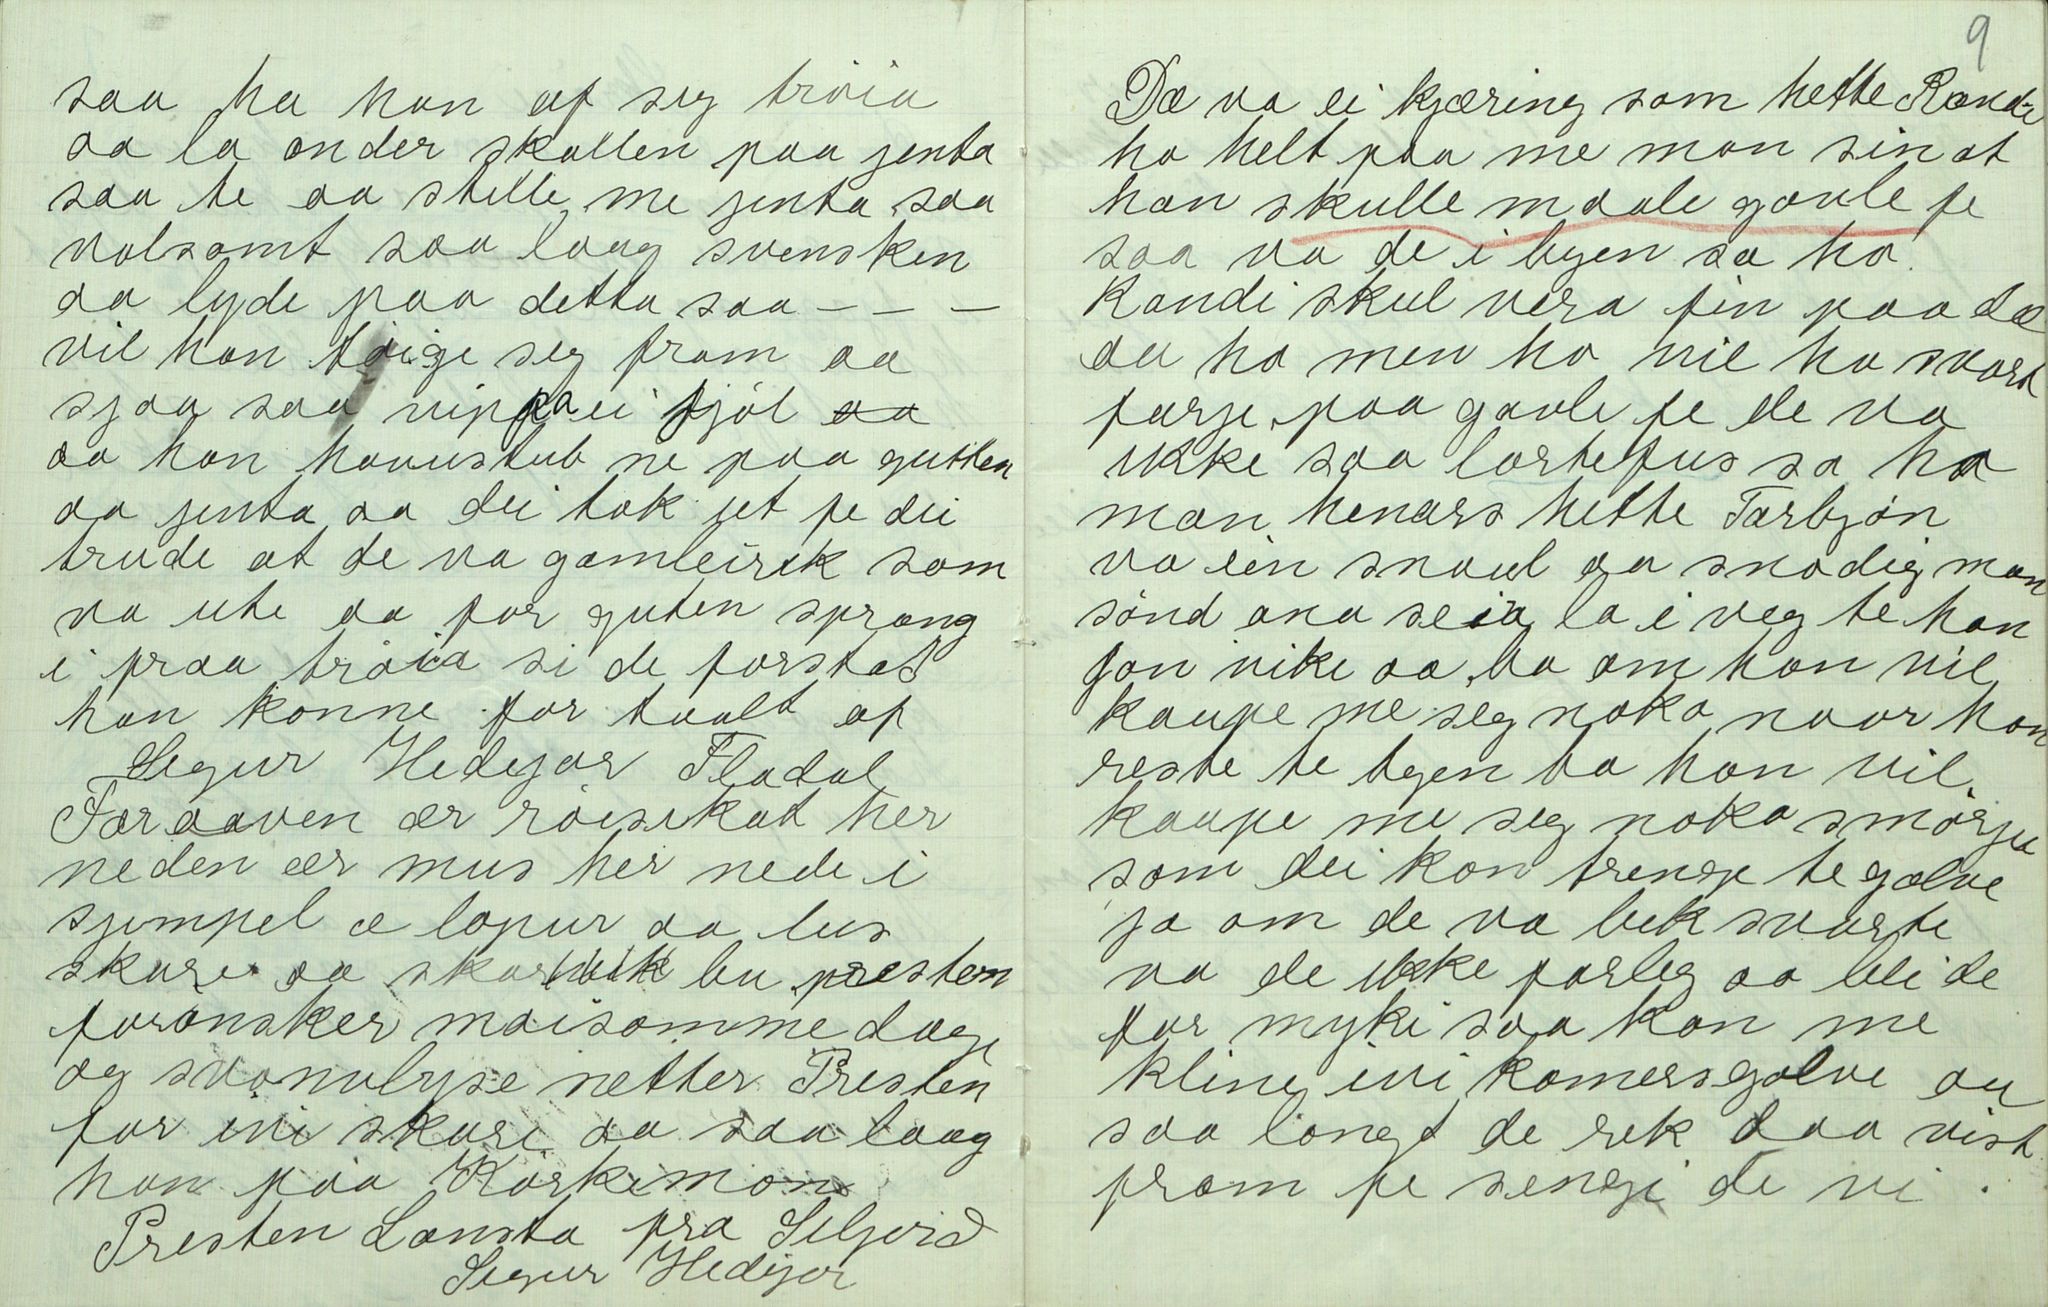 saa ha han af seg tröia
aa la onder skallen paa jenta
saa te aa stelle me jenta saa
valsamt saa laag svensken
aa lyde paa detta saa – – –
vil han töige seg fram aa
sjaa saa vippa ei fjöl aa
aa han havustub ne paa gutten
aa jenta aa dei tok jet fe dei
trude at de va gamleirik som
va ute aa for guten sprang
i fraa tröia si de forstod
han konne for taalt af
Segur Hedejor Fladal
Tær aaven ær röisekat her
neden ær mus her nede i
sjimpel æ lopur aa lus
skure aa bu presten
forönsker möisomme dage
og svönulyse netter Presten
for ivi skuri aa saa laag
han paa Körkimon
Presten Lansta fra Seljord
Segur Hedejor
9
Dæ va ei kjæring som hette Randi
ho helt paa me man sin at
han skulle maale gaale fe
saa va de i byen sa ho
Randi skul vera fin paa dæ
au ho men ho vil ha svart
farje paa gaale fe de va
ikke saa lortefus sa ho
man henars hette Tarbjön
va ein snaul aa snodig man
sönd ana seia la i veg te han
Jon vike aa ba om han vil
kaupe me seg noko naar han
reste te byen ba han vil
kaupe me seg noko smörju
som dei kan trenge te gölve
ja om de va bek svarte
va de ikke farleg aa blei de
for myki saa kan me
kline ivi kamersgölve au
saa langt de rek daa vist
fram fe sengi de vi .